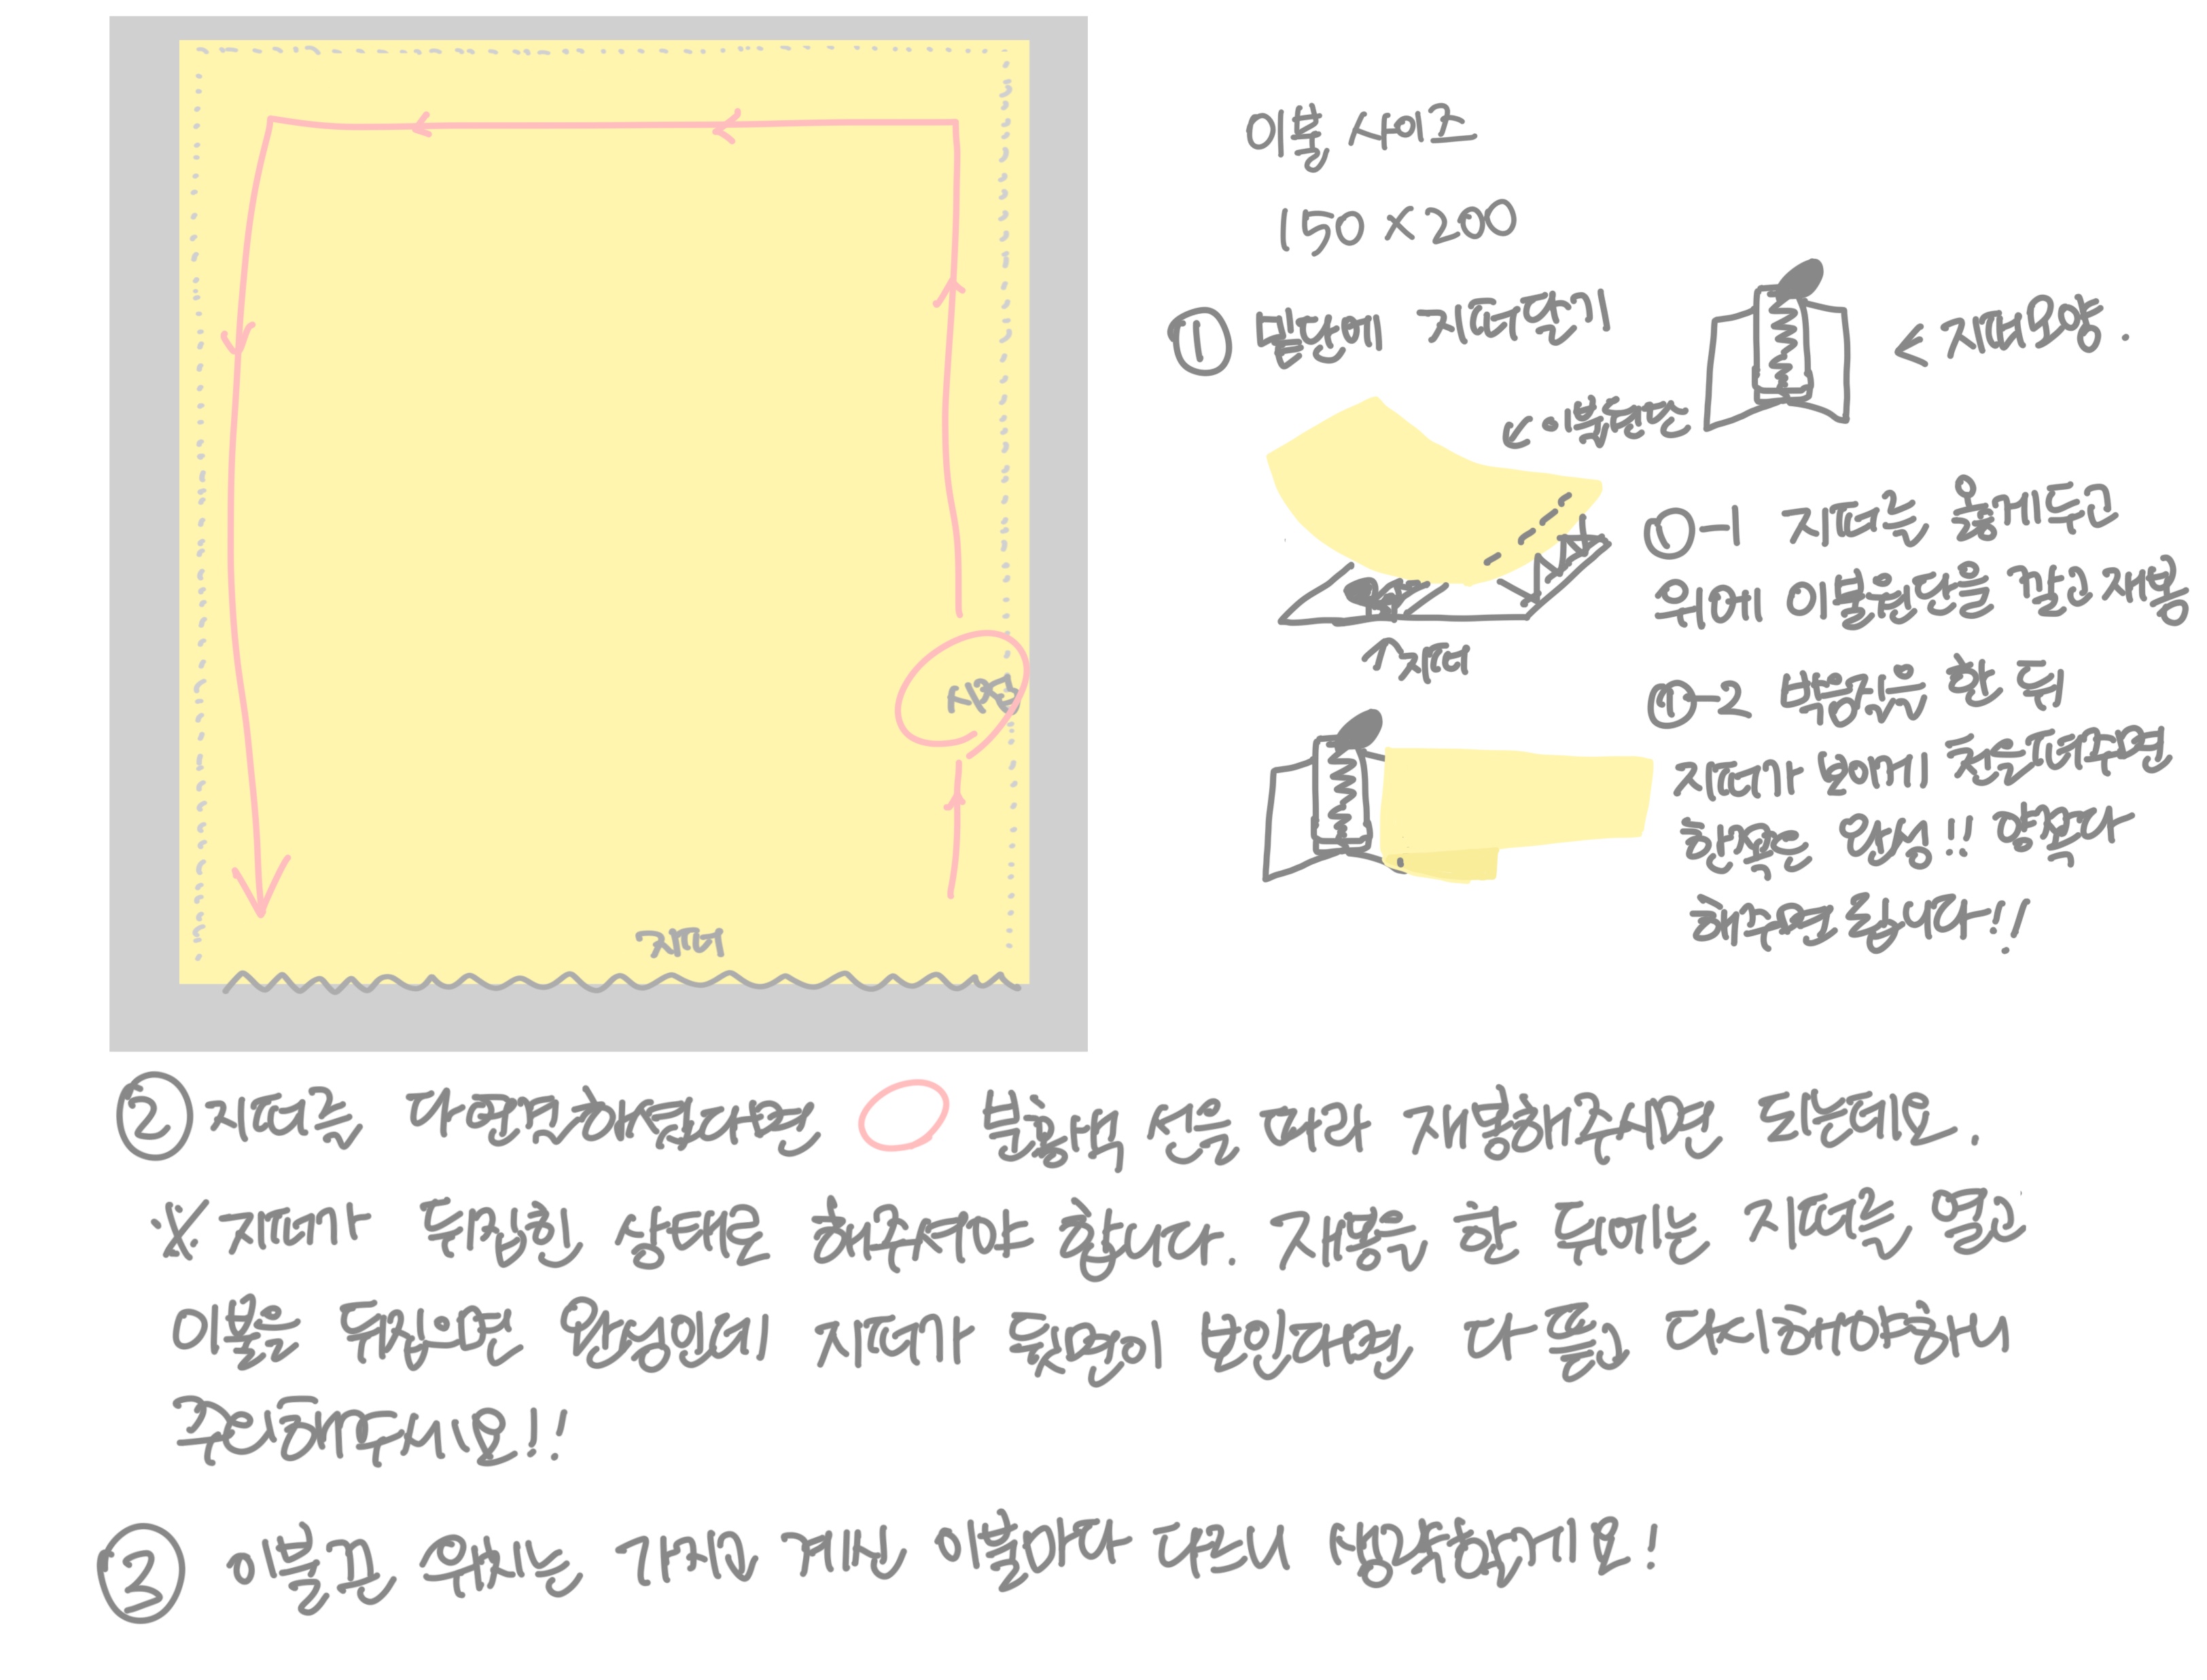 이불 사이즈
150 × 200
① 밑단에 지퍼달기
< 지퍼모양.
이불원단
지퍼
①-1 지퍼를 위에두고
위에 이불원단을 깔고 재봉
①-2 박음질을 한 뒤
지퍼가 보이게 해주면
한쪽은 완성!! 양쪽다
해주면 됩니다!!
시작
지퍼
② 지퍼를 다 연결하셨다면 부분부터 선을 따라 재봉해주시면 되는데요.
※ 지퍼가 뒤집힌 상태로 해주셔야 합니다. 재봉을 한 뒤에는 지퍼를 열고
이불을 뒤집으면 완성인데 지퍼가 뒷면이 보인다면 다 뜯고 다시해야하니
주의해주세요!!
③ 이불끈 위치는 가지고 계신 이불마다 다르니 생략할게요!